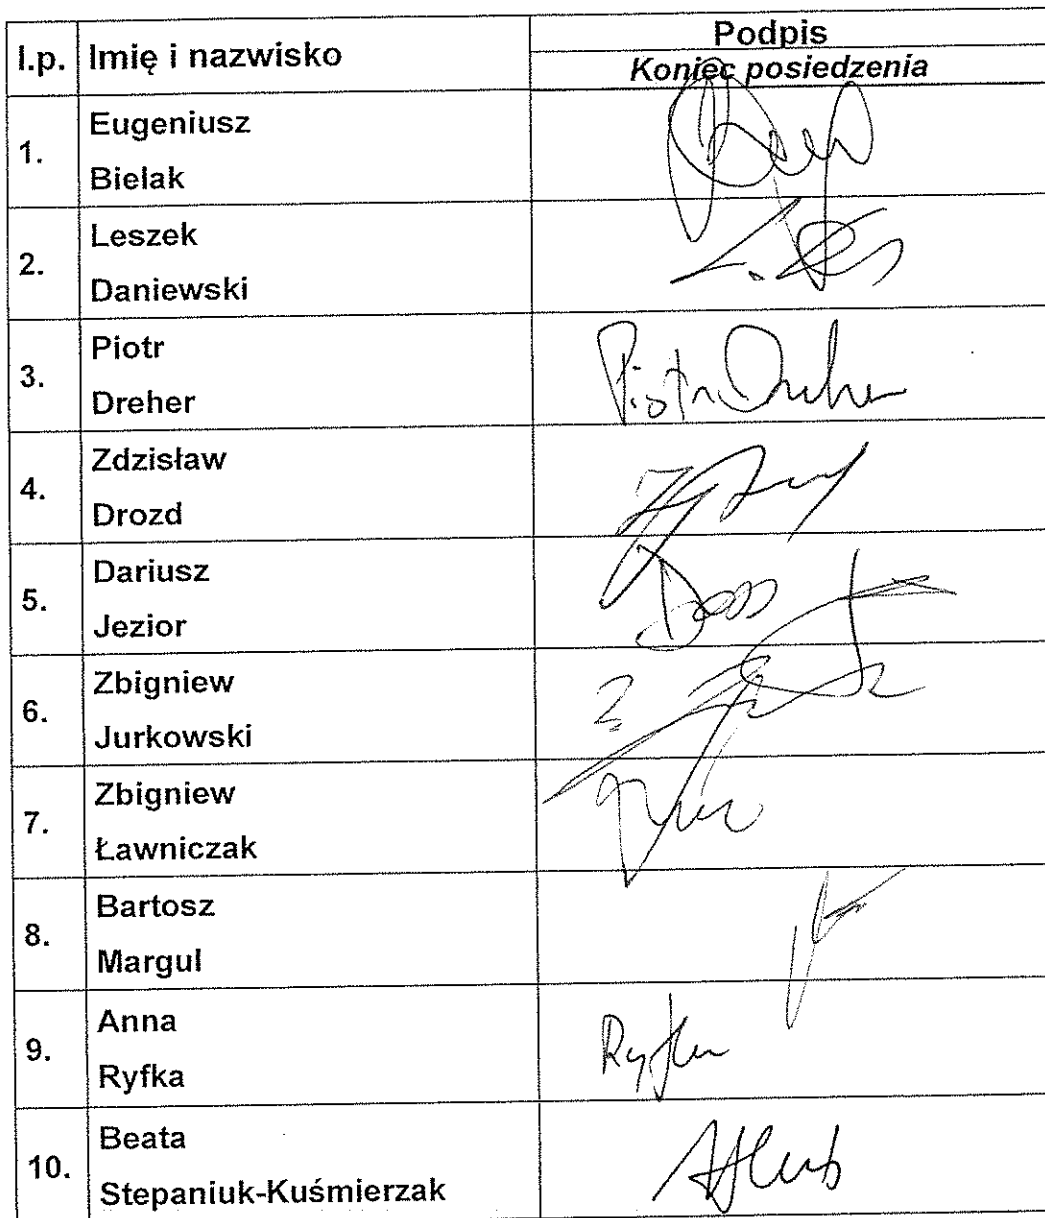 l.p. Imię i nazwisko Podpis
Koniec posiedzenia
1. Eugeniusz
Bielak
2. Leszek
Daniewski
3. Piotr
Dreher
Piotr Dreher
4. Zdzisław
Drozd
5. Dariusz
Jezior
6. Zbigniew
Jurkowski
7. Zbigniew
Ławniczak
8. Bartosz
Margul
9. Anna
Ryfka
Ryfka
10. Beata
Stepaniuk-Kuśmierzak